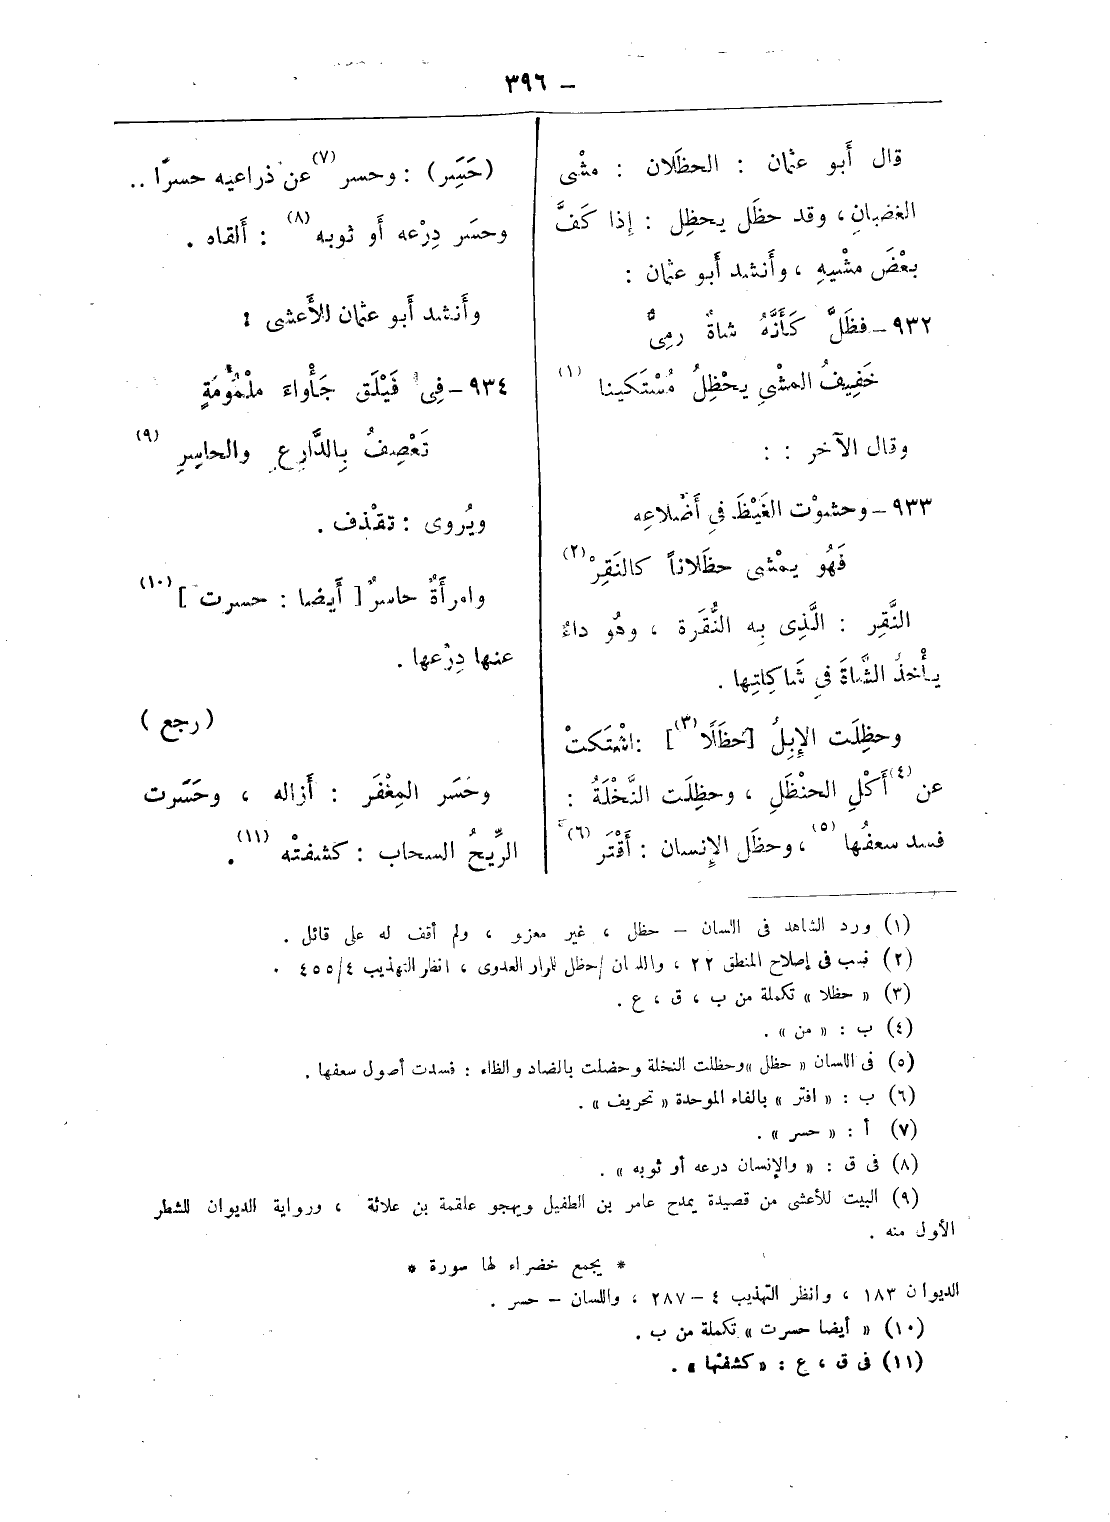 – ٣٩٦
قال أَبو عثمان : الحظَلان : مشْى
الغضبانِ ، وقد حظَل يحظِل : إذا كَفَّ
بعْضَ مشْيهِ ، وأَنشد أَبو عثمان :
٩٣٢ – فظَلَّ كَأَنَّهُ شاةٌ رمِىٌّ
خَفِيفُ المشْيِ يحْظِلُ مُسْتَكينا (١)
وقال الآخر : :
٩٣٣ – وحشوْت الغَيْظَ فى أَضْلاعِه
فَهُو يمْشى حظَلاناً كالنَقِرْ (٢)
النَّقِر : الَّذِى بِه النُّقَرة ، وهُو داءُ
يأْخذُ الشَّاةَ فى شَاكِلتِها .
وحظِلَت الإِبِلُ [حظَلًا (٣)] : اشْتَكتْ
عن (٤) أَكْلِ الحنْظَلِ ، وحظِلَت النَّخْلَةُ :
فسد سعفُها (٥) ، وحظَل الإِنسان : أَقْتَر (٦)
(حَسَِر) : وحسر (٧) عنْ ذراعيه حسرًا ..
وحسَر دِرْعه أَو ثوبه (٨) : أَلقاه .
وأَنشد أَبو عثمان للأَعشى :
٩٣٤ – فِى فَيْلَق جَأْواءَ ملْمُومَةٍ
تَعْصِفُ بِالدَّارِعِ والحاسِرِ (٩)
ويُروى : تقْذف .
وامرأَةٌ حاسرٌ [ أَيضا : حسرت ] (١٠)
عنها دِرْعها .
( رجع )
وحَسَر المِغْفَر : أَزاله ، وحَسَرت
الرِّيحُ السحاب : كشفتْه (١١) .
(١) ورد الشاهد فى اللسان – حظل ، غير معزو ، ولم أقف له على قائل .
(٢) نسب فى إصلاح المنطق ٢٢ ، واللسان / حظل للمرار العدوى ، انظر التهذيب ٤/٤٥٥ .
(٣) « حظلا » تكملة من ب ، ق ، ع .
(٤) ب : « من » .
(٥) فى اللسان « حظل » وحظلت النخلة وحضلت بالضاد والظاء : فسدت أصول سعفها .
(٦) ب : « افتر » بالفاء الموحدة « تحريف » .
(٧) أ : « حسر » .
(٨) فى ق : « والإنسان درعه أو ثوبه » .
(٩) البيت للأعشى من قصيدة يمدح عامر بن الطفيل ويهجو علقمة بن علاثة ، ورواية الديوان للشطر
الأول منه .
* يجمع خضراء لها سورة *
الديوان ١٨٣ ، وانظر التهذيب ٤ – ٢٨٧ ، واللسان – حسر .
(١٠) « أيضا حسرت » تكملة من ب .
(١١) فى ق ، ع : « كشفتها » .